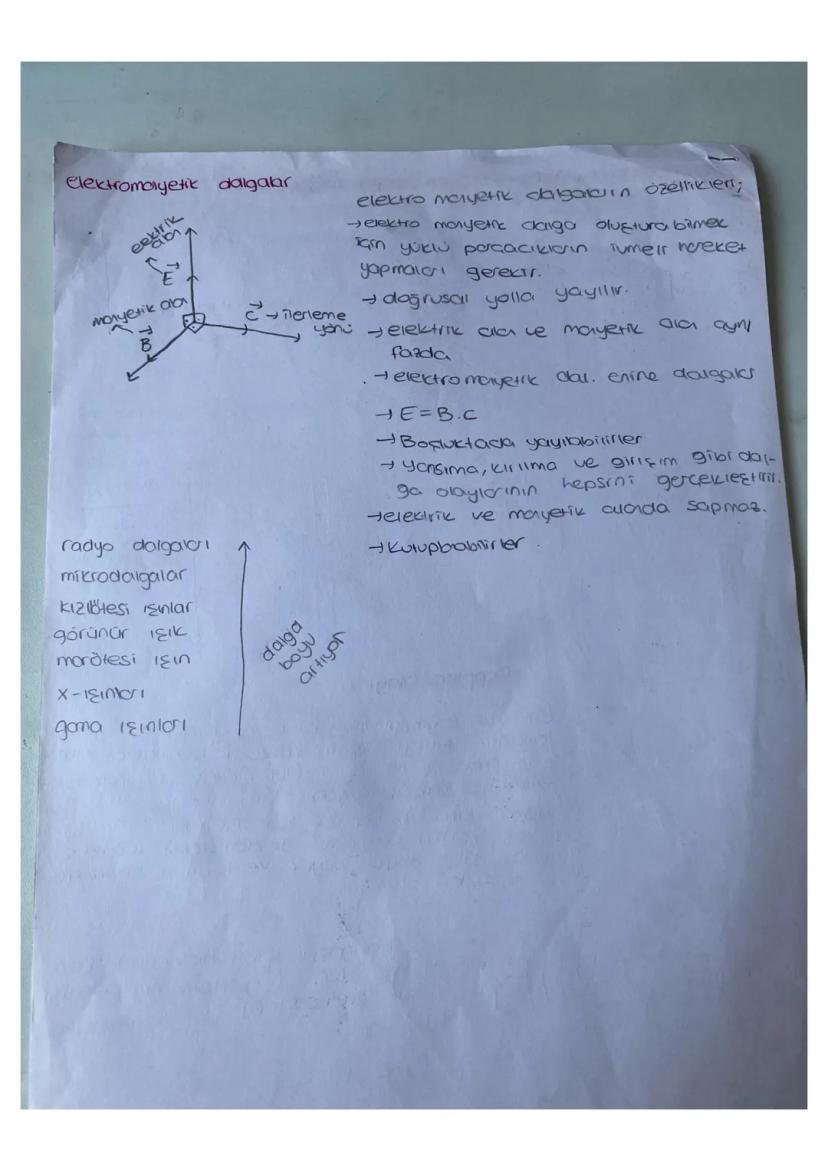 elektromanyetik dalgalar
elektrik
alan
E
manyetik alan
B
C → ilerleme
yönü
elektro manyetik dalgaların özellikleri;
→ elektro manyetik dalga oluşturabilmek
için yüklü parçacıkların ivmeli hareket
yapmaları gerekir.
→ doğrusal yolla yayılır.
→ elektrik alan ve manyetik alan aynı
fazda
→ elektromanyetik dal. enine dalgalar
→ E = B.C
→ Boşluktada yayılabilirler
→ yansıma, kırılma ve girişim gibi dal-
ga olaylarının hepsini gerçekleştirir.
→ elektrik ve manyetik alanda sapmaz.
→ Kutuplanabilirler.
radyo dalgaları
mikrodalgalar
kızılötesi ışınlar
görünür ışık
morötesi ışın
x-ışınları
gama ışınları
dalga
boyu
artıyor